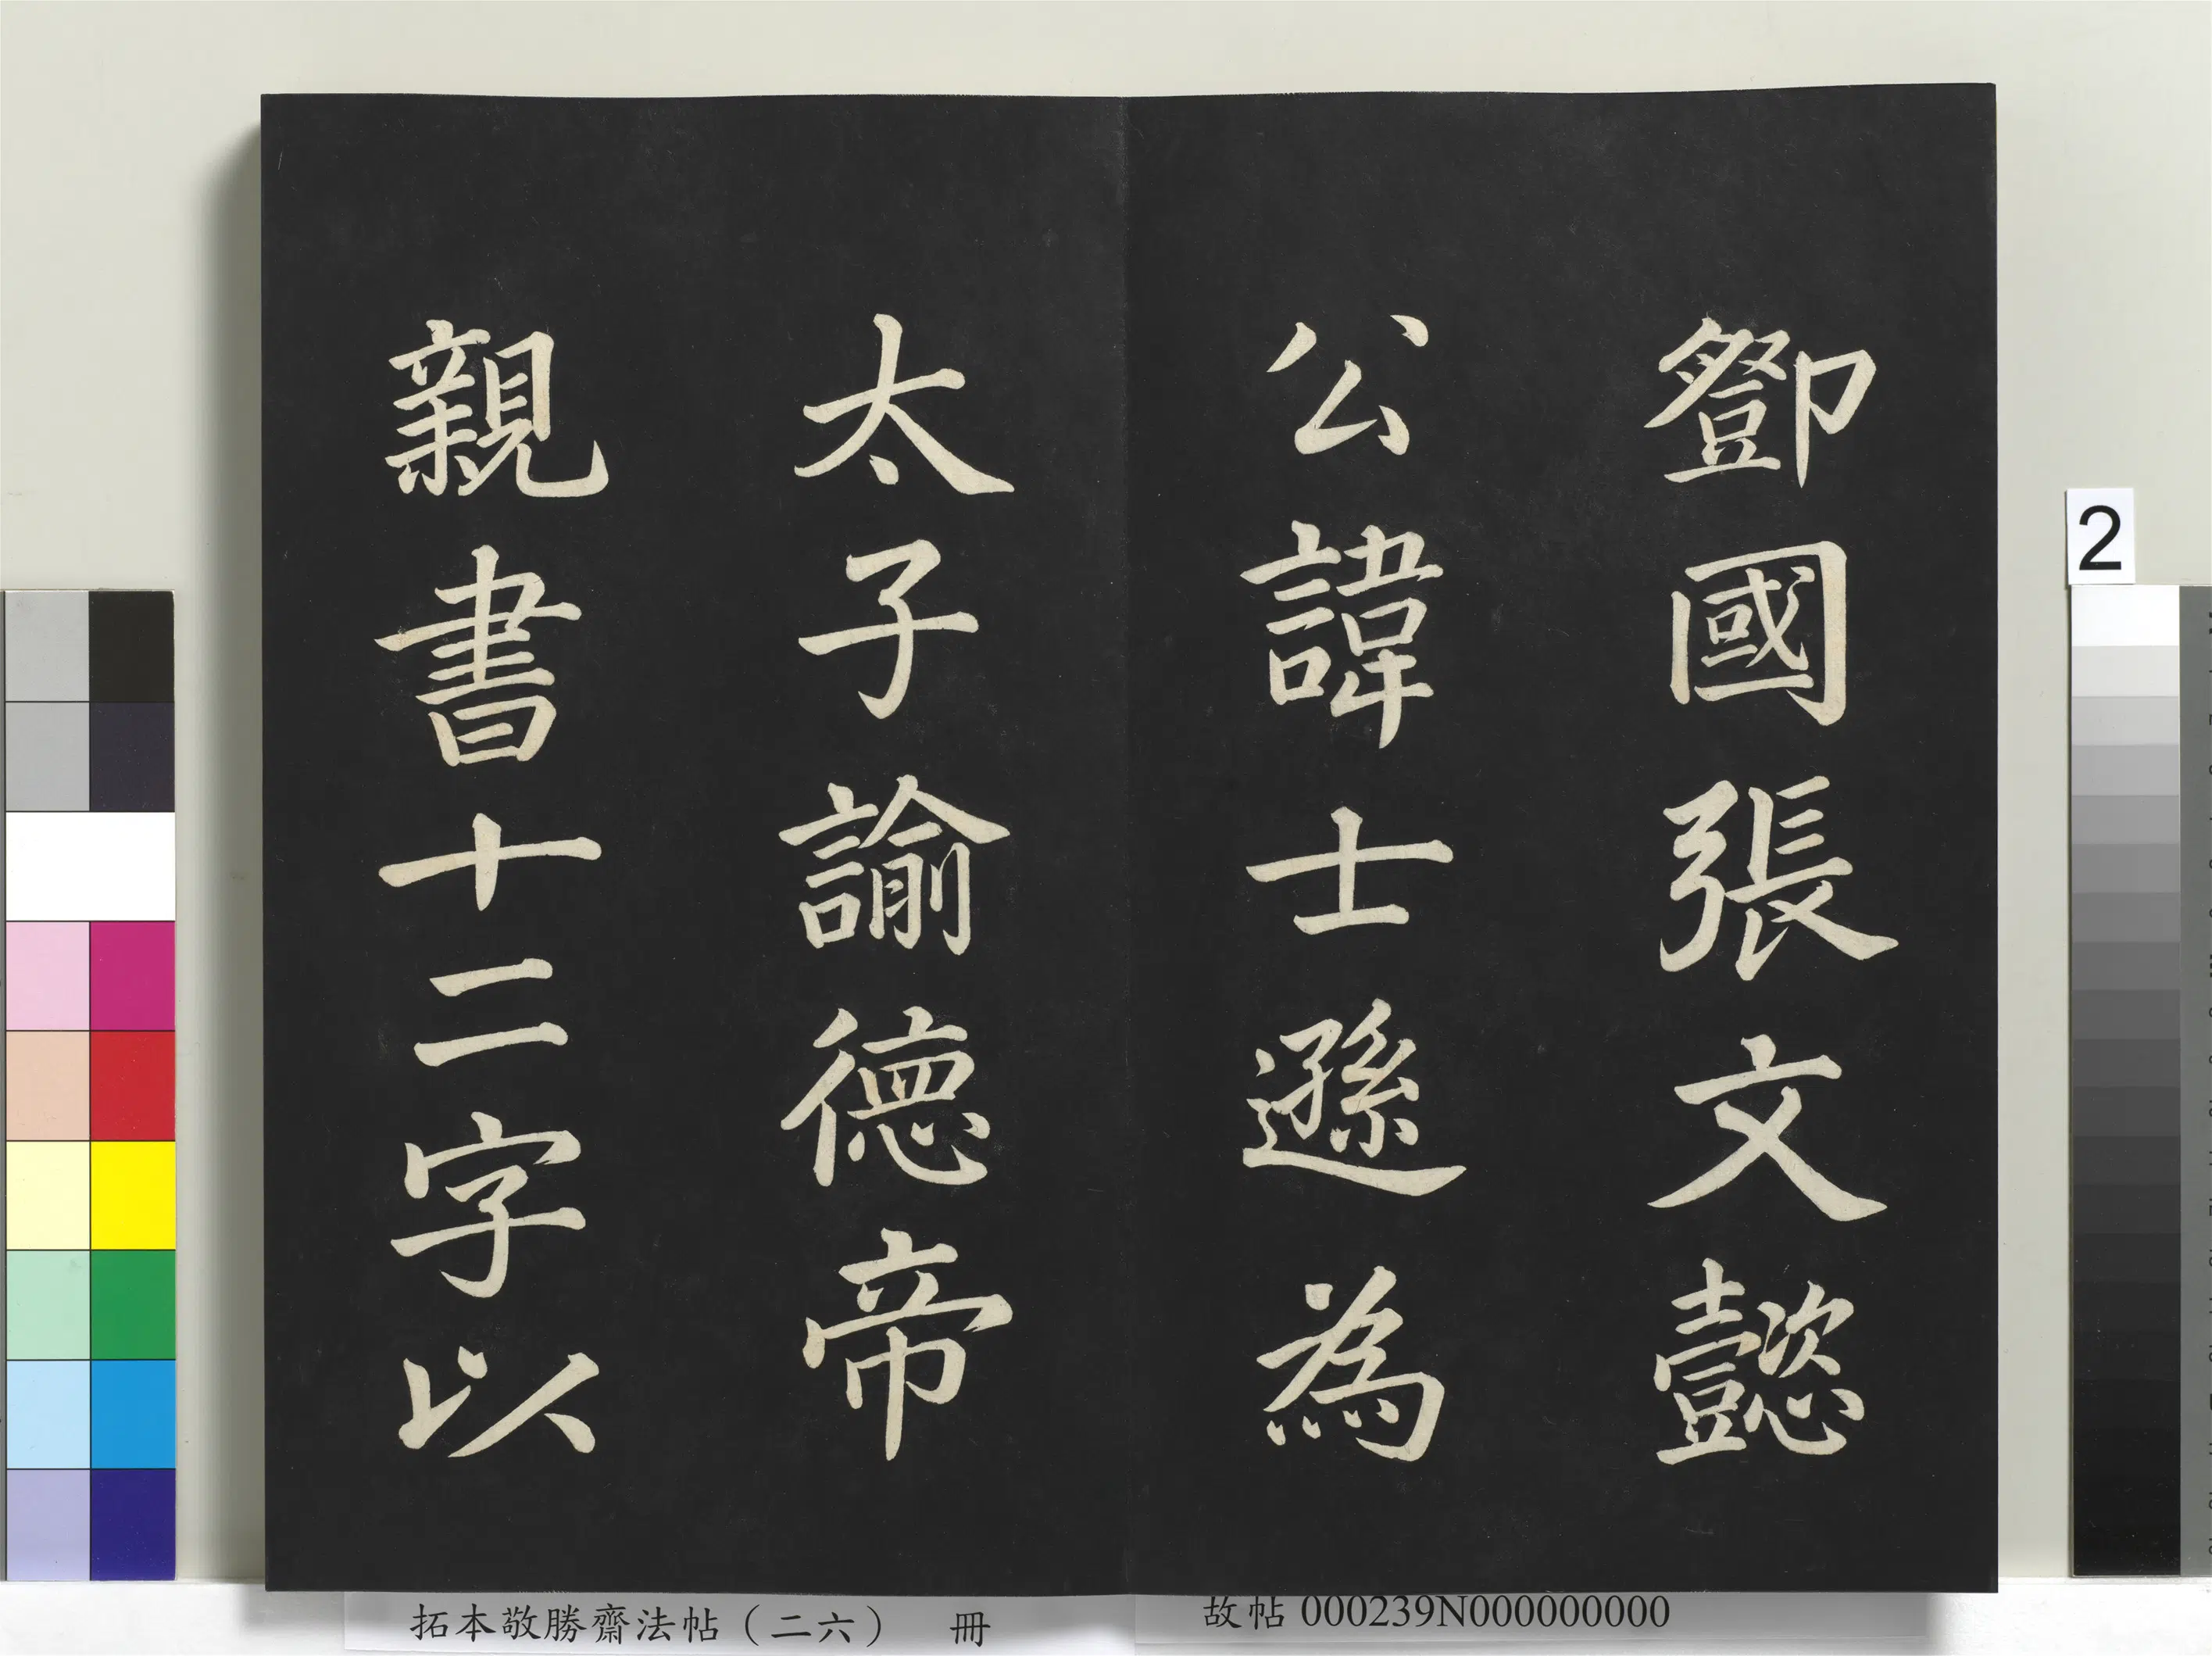 鄧國張文懿
公諱士遜為
太子諭德帝
親書十二字以
拓本敬勝齋法帖（二六） 冊
故帖 000239N000000000
2